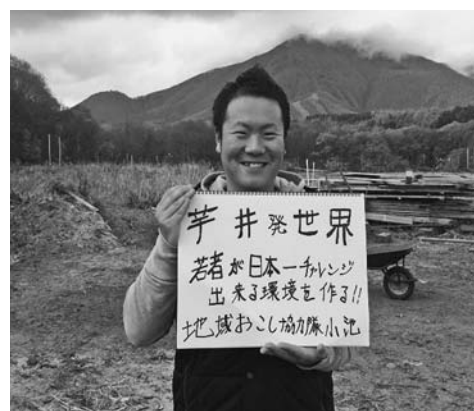 芋井発世界
若者が日本一チャレンジ
出来る環境を作る!!
地域おこし協力隊小池